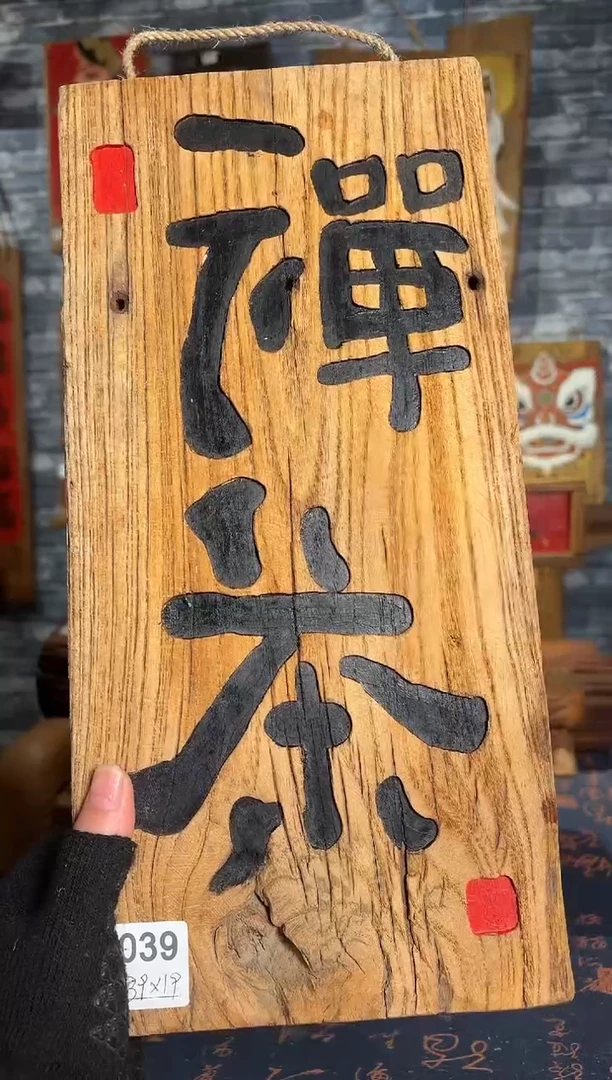 禪
茶
039
39x19